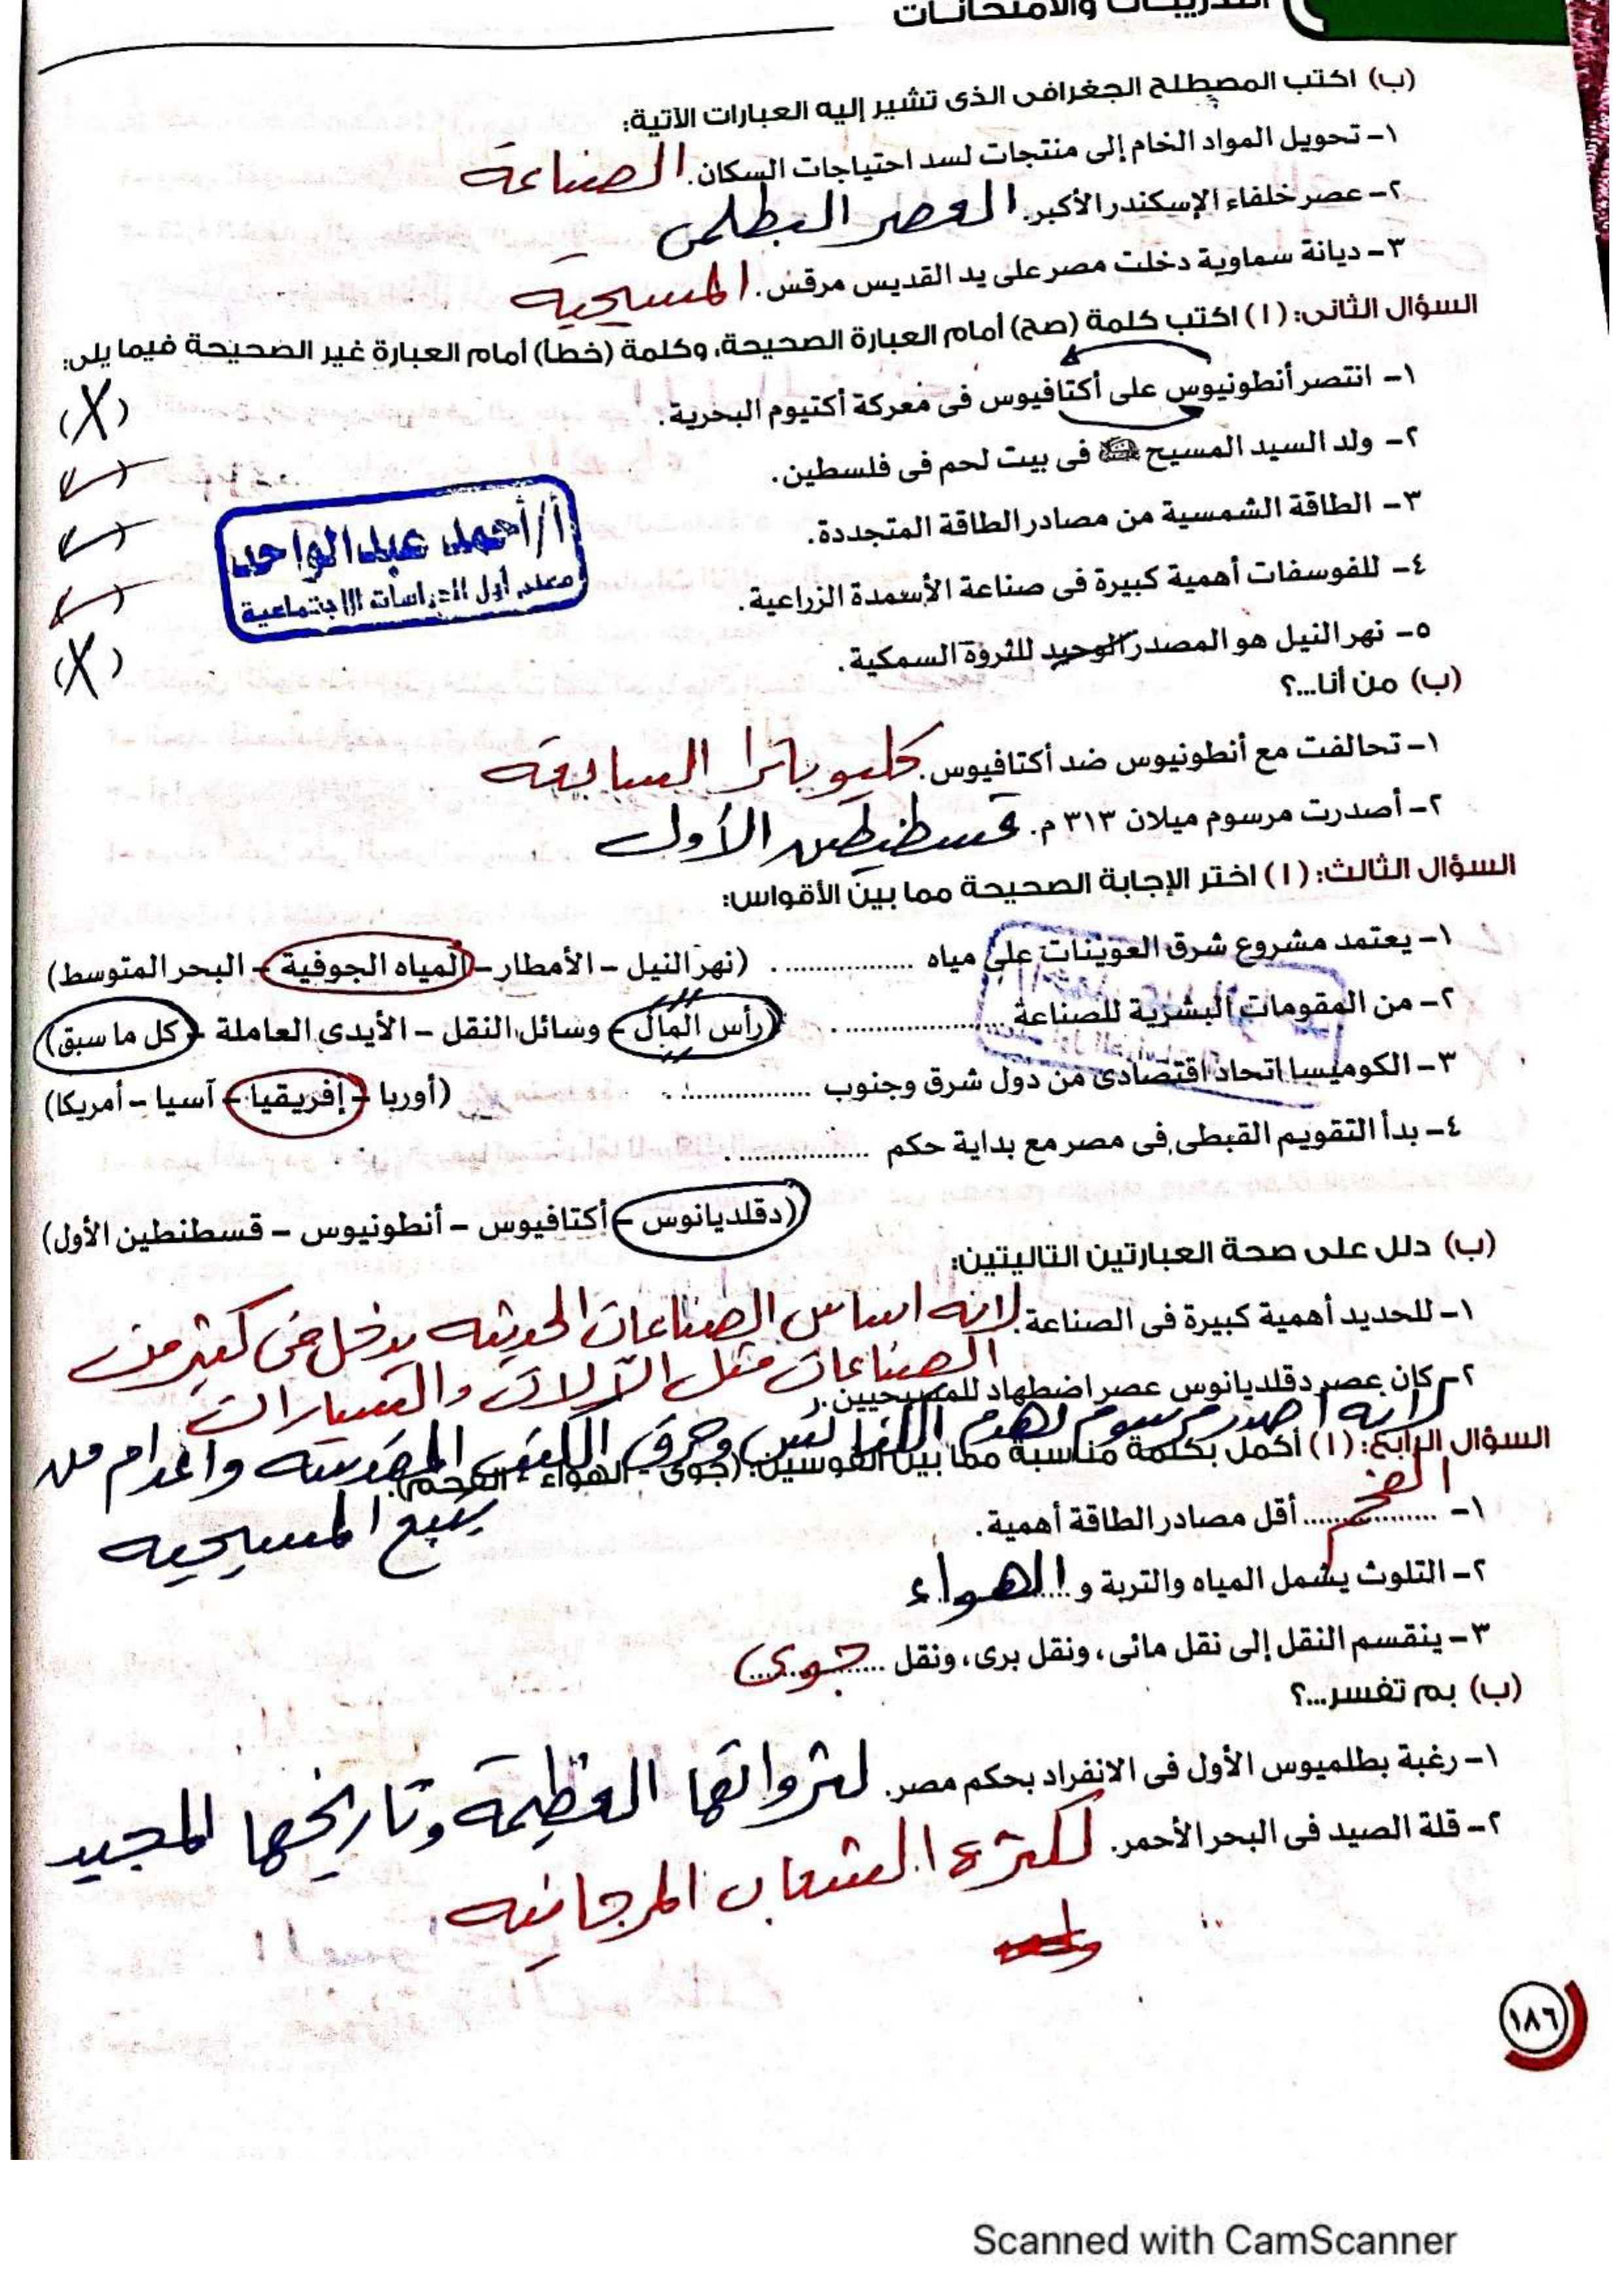 التدريبات والامتحانات
(ب) اكتب المصطلح الجغرافى الذى تشير إليه العبارات الآتية:
١- تحويل المواد الخام إلى منتجات لسد احتياجات السكان. الصناعة
٢- عصر خلفاء الإسكندر الأكبر. العصر البطلمى
٣- ديانة سماوية دخلت مصر على يد القديس مرقس. المسيحيه
السؤال الثانى: (ا) اكتب كلمة (صح) أمام العبارة الصحيحة، وكلمة (خطأ) أمام العبارة غير الصحيحة فيما يلى:
١- انتصر أنطونيوس على أكتافيوس فى معركة أكتيوم البحرية. (X)
٢- ولد السيد المسيح فى بيت لحم فى فلسطين. (✓)
٣- الطاقة الشمسية من مصادر الطاقة المتجددة. (✓)
أ/أحمد عبد الواحد
معلم أول الدراسات الاجتماعية
٤- للفوسفات أهمية كبيرة فى صناعة الأسمدة الزراعية. (✓)
٥- نهر النيل هو المصدر الوحيد للثروة السمكية. (X)
(ب) من أنا...؟
١- تحالفت مع أنطونيوس ضد أكتافيوس. كليوباترا السابعة
٢- أصدرت مرسوم ميلان ٣١٣ م. قسطنطين الأول
السؤال الثالث: (ا) اختر الإجابة الصحيحة مما بين الأقواس:
١- يعتمد مشروع شرق العوينات على مياه ................. . (نهر النيل - الأمطار - المياه الجوفية - البحر المتوسط)
٢- من المقومات البشرية للصناعة ................. . (رأس المال - وسائل النقل - الأيدى العاملة - كل ما سبق)
٣- الكوميسا اتحاد اقتصادى من دول شرق وجنوب ................. . (أوربا - إفريقيا - آسيا - أمريكا)
٤- بدأ التقويم القبطى فى مصر مع بداية حكم ................. .
(دقلديانوس - أكتافيوس - أنطونيوس - قسطنطين الأول)
(ب) دلل على صحة العبارتين التاليتين:
١- للحديد أهمية كبيرة فى الصناعة. لانه اساس الصناعات الحديثه يدخل فى كثير من
الصناعات مثل الآلات والسيارات
٢- كان عصر دقلديانوس عصر اضطهاد للمسيحيين.
لانه أصدر مرسوم لهدم الكنائس وحرق الكتب المقدسه واعدام من
يتبع المسيحيه
السؤال الرابع: (ا) أكمل بكلمة مناسبة مما بين القوسين: (جوى - الهواء - الفحم).
١- ................. أقل مصادر الطاقة أهمية. الفحم
٢- التلوث يشمل المياه والتربة و ..... الهواء
٣- ينقسم النقل إلى نقل مائى، ونقل برى، ونقل ................. جوى
(ب) بم تفسر...؟
١- رغبة بطلميوس الأول فى الانفراد بحكم مصر. لثرواتها العظيمة وتاريخها المجيد
٢- قلة الصيد فى البحر الأحمر. لكثرة الشعاب المرجانيه
١٨٦
Scanned with CamScanner